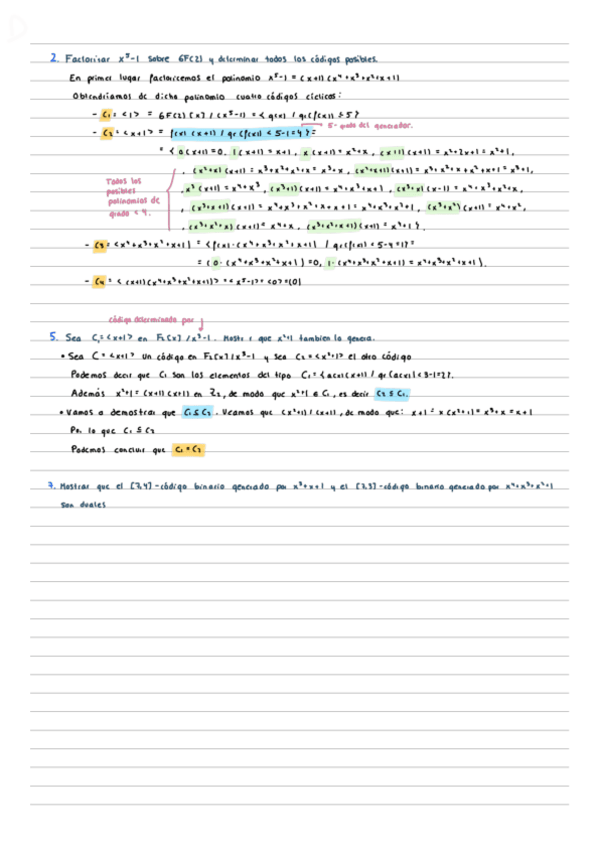 2. Factorizar x⁵-1 sobre GF(2) y determinar todos los códigos posibles.
En primer lugar factoricemos el polinomio x⁵-1 = (x+1)(x⁴+x³+x²+x+1)
Obtendríamos de dicho polinomio cuatro códigos cíclicos:
- C₁ = <1> = GF(2)[x] / (x⁵-1) = { q(x) / gr(f(x)) ≤ 5}
5-grado del generador.
- C₂ = <x+1> = f(x) (x+1) / gr(f(x)) < 5-1=4 } =
= { 0(x+1)=0, 1(x+1) = x+1, x(x+1) = x²+x, (x+1)(x+1) = x²+2x+1 = x²+1,
, (x²+x)(x+1) = x³+x²+x²+x = x³+x, (x²+x+1)(x+1) = x³+x²+x+x²+x+1 = x³+1,
Todos los posibles polinomios de grado < 4.
, x³(x+1) = x⁴+x³, (x³+1)(x+1) = x⁴+x³+x+1, (x³+x)(x-1) = x⁴+x³+x²+x,
, (x³+x+1)(x+1) = x⁴+x³+x²+x+x+1 = x⁴+x³+x²+1, (x³+x²)(x+1) = x⁴+x²,
, (x³+x²+x)(x+1) = x⁴+x, (x³+x²+x+1)(x+1) = x⁴+1 }.
- C₃ = <x⁴+x³+x²+x+1> = {f(x)·(x⁴+x³+x²+x+1) / gr(f(x)) < 5-4=1} =
= {0·(x⁴+x³+x²+x+1) = 0, 1·(x⁴+x³+x²+x+1) = x⁴+x³+x²+x+1 }.
- C₄ = <(x+1)(x⁴+x³+x²+x+1)> = <x⁵-1> = <0> = {0}
código determinado por
5. Sea C₁ = <x+1> en F₂[x] / x³-1. Mostrar que x²+1 tambien lo genera.
• Sea C = <x+1> un código en F₂[x] / x³-1 y sea C₂ = <x²+1> el otro código
Podemos decir que C₁ son los elementos del tipo C₁ = { a(x)(x+1) / gr(a(x)) < 3-1=2}.
Además x²+1 = (x+1)(x+1) en Z₂, de modo que x²+1 ∈ C₁, es decir C₂ ⊆ C₁.
• Vamos a demostrar que C₁ ⊆ C₂. Veamos que (x²+1) / (x+1), de modo que: x+1 = x(x²+1) = x³+x = x+1
Por lo que C₁ ⊆ C₂
Podemos concluir que C₁ = C₂
7. Mostrar que el [7,4]-código binario generado por x³+x+1 y el [7,3]-código binario generado por x⁴+x³+x²+1
son duales